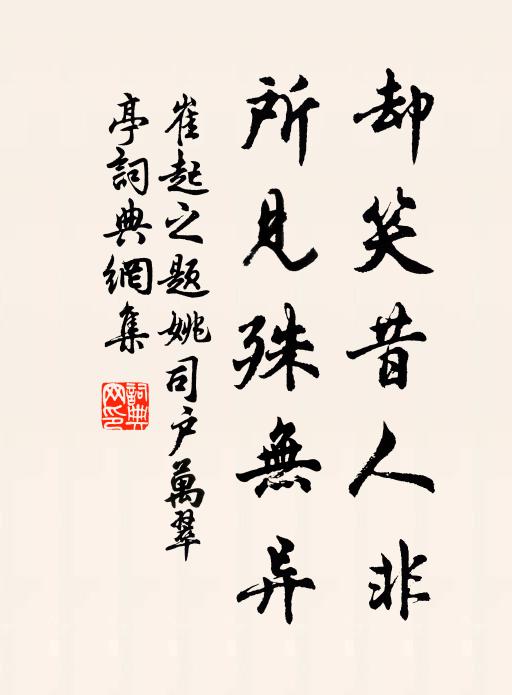 却笑昔人非
所見殊無异
崔起之题姚司户萬翠
亭詞典網集
詞典
網印